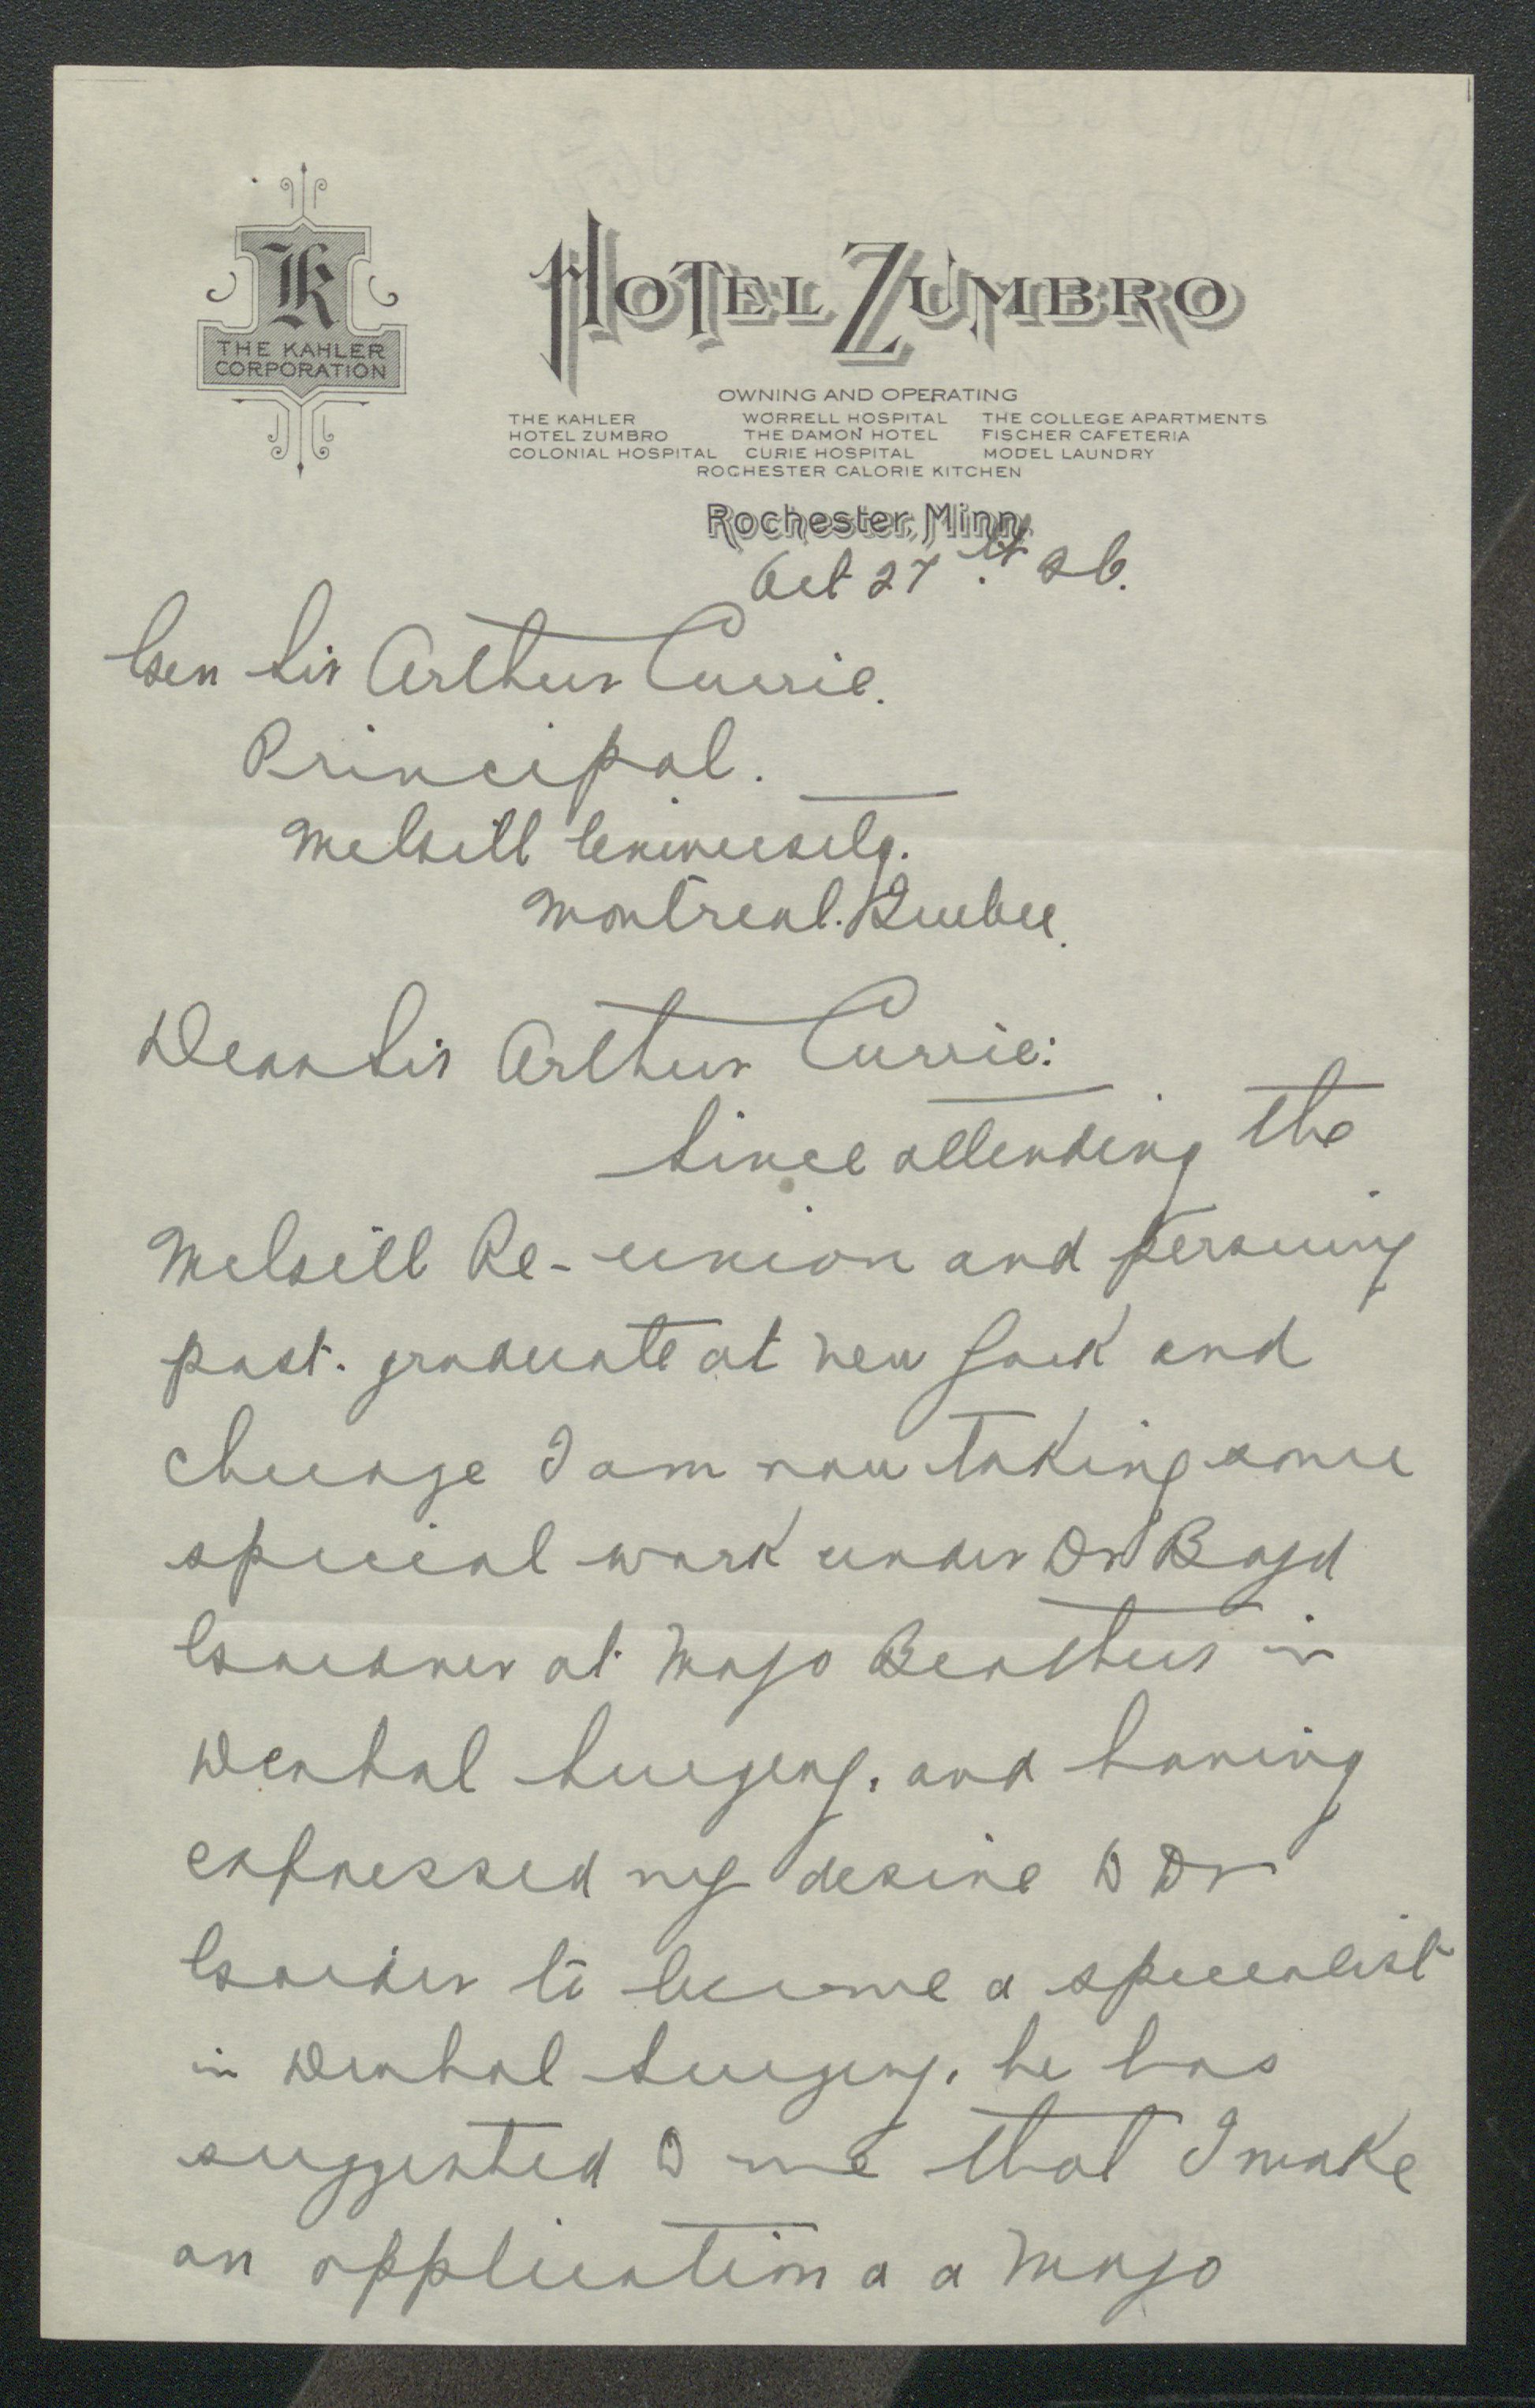 K
THE KAHLER
CORPORATION
HOTEL ZUMBRO
OWNING AND OPERATING
THE KAHLER WORRELL HOSPITAL THE COLLEGE APARTMENTS
HOTEL ZUMBRO THE DAMON HOTEL FISCHER CAFETERIA
COLONIAL HOSPITAL CURIE HOSPITAL MODEL LAUNDRY
ROCHESTER CALORIE KITCHEN
Rochester, Minn.
Oct 27th 26.
Gen Sir Arthur Currie.
Principal.
McGill University.
Montreal. Quebec.
Dear Sir Arthur Currie:
Since attending the
McGill Re-union and persuing
post. graduate at New York and
Chicago I am now taking some
special work under Dr Boyd
Gardner at Mayo Brothers in
Dental Surgery. and having
expressed my desire to Dr
Garder to become a specialist
in Dental Surgery. he has
suggested to me that I make
an application a a Mayo